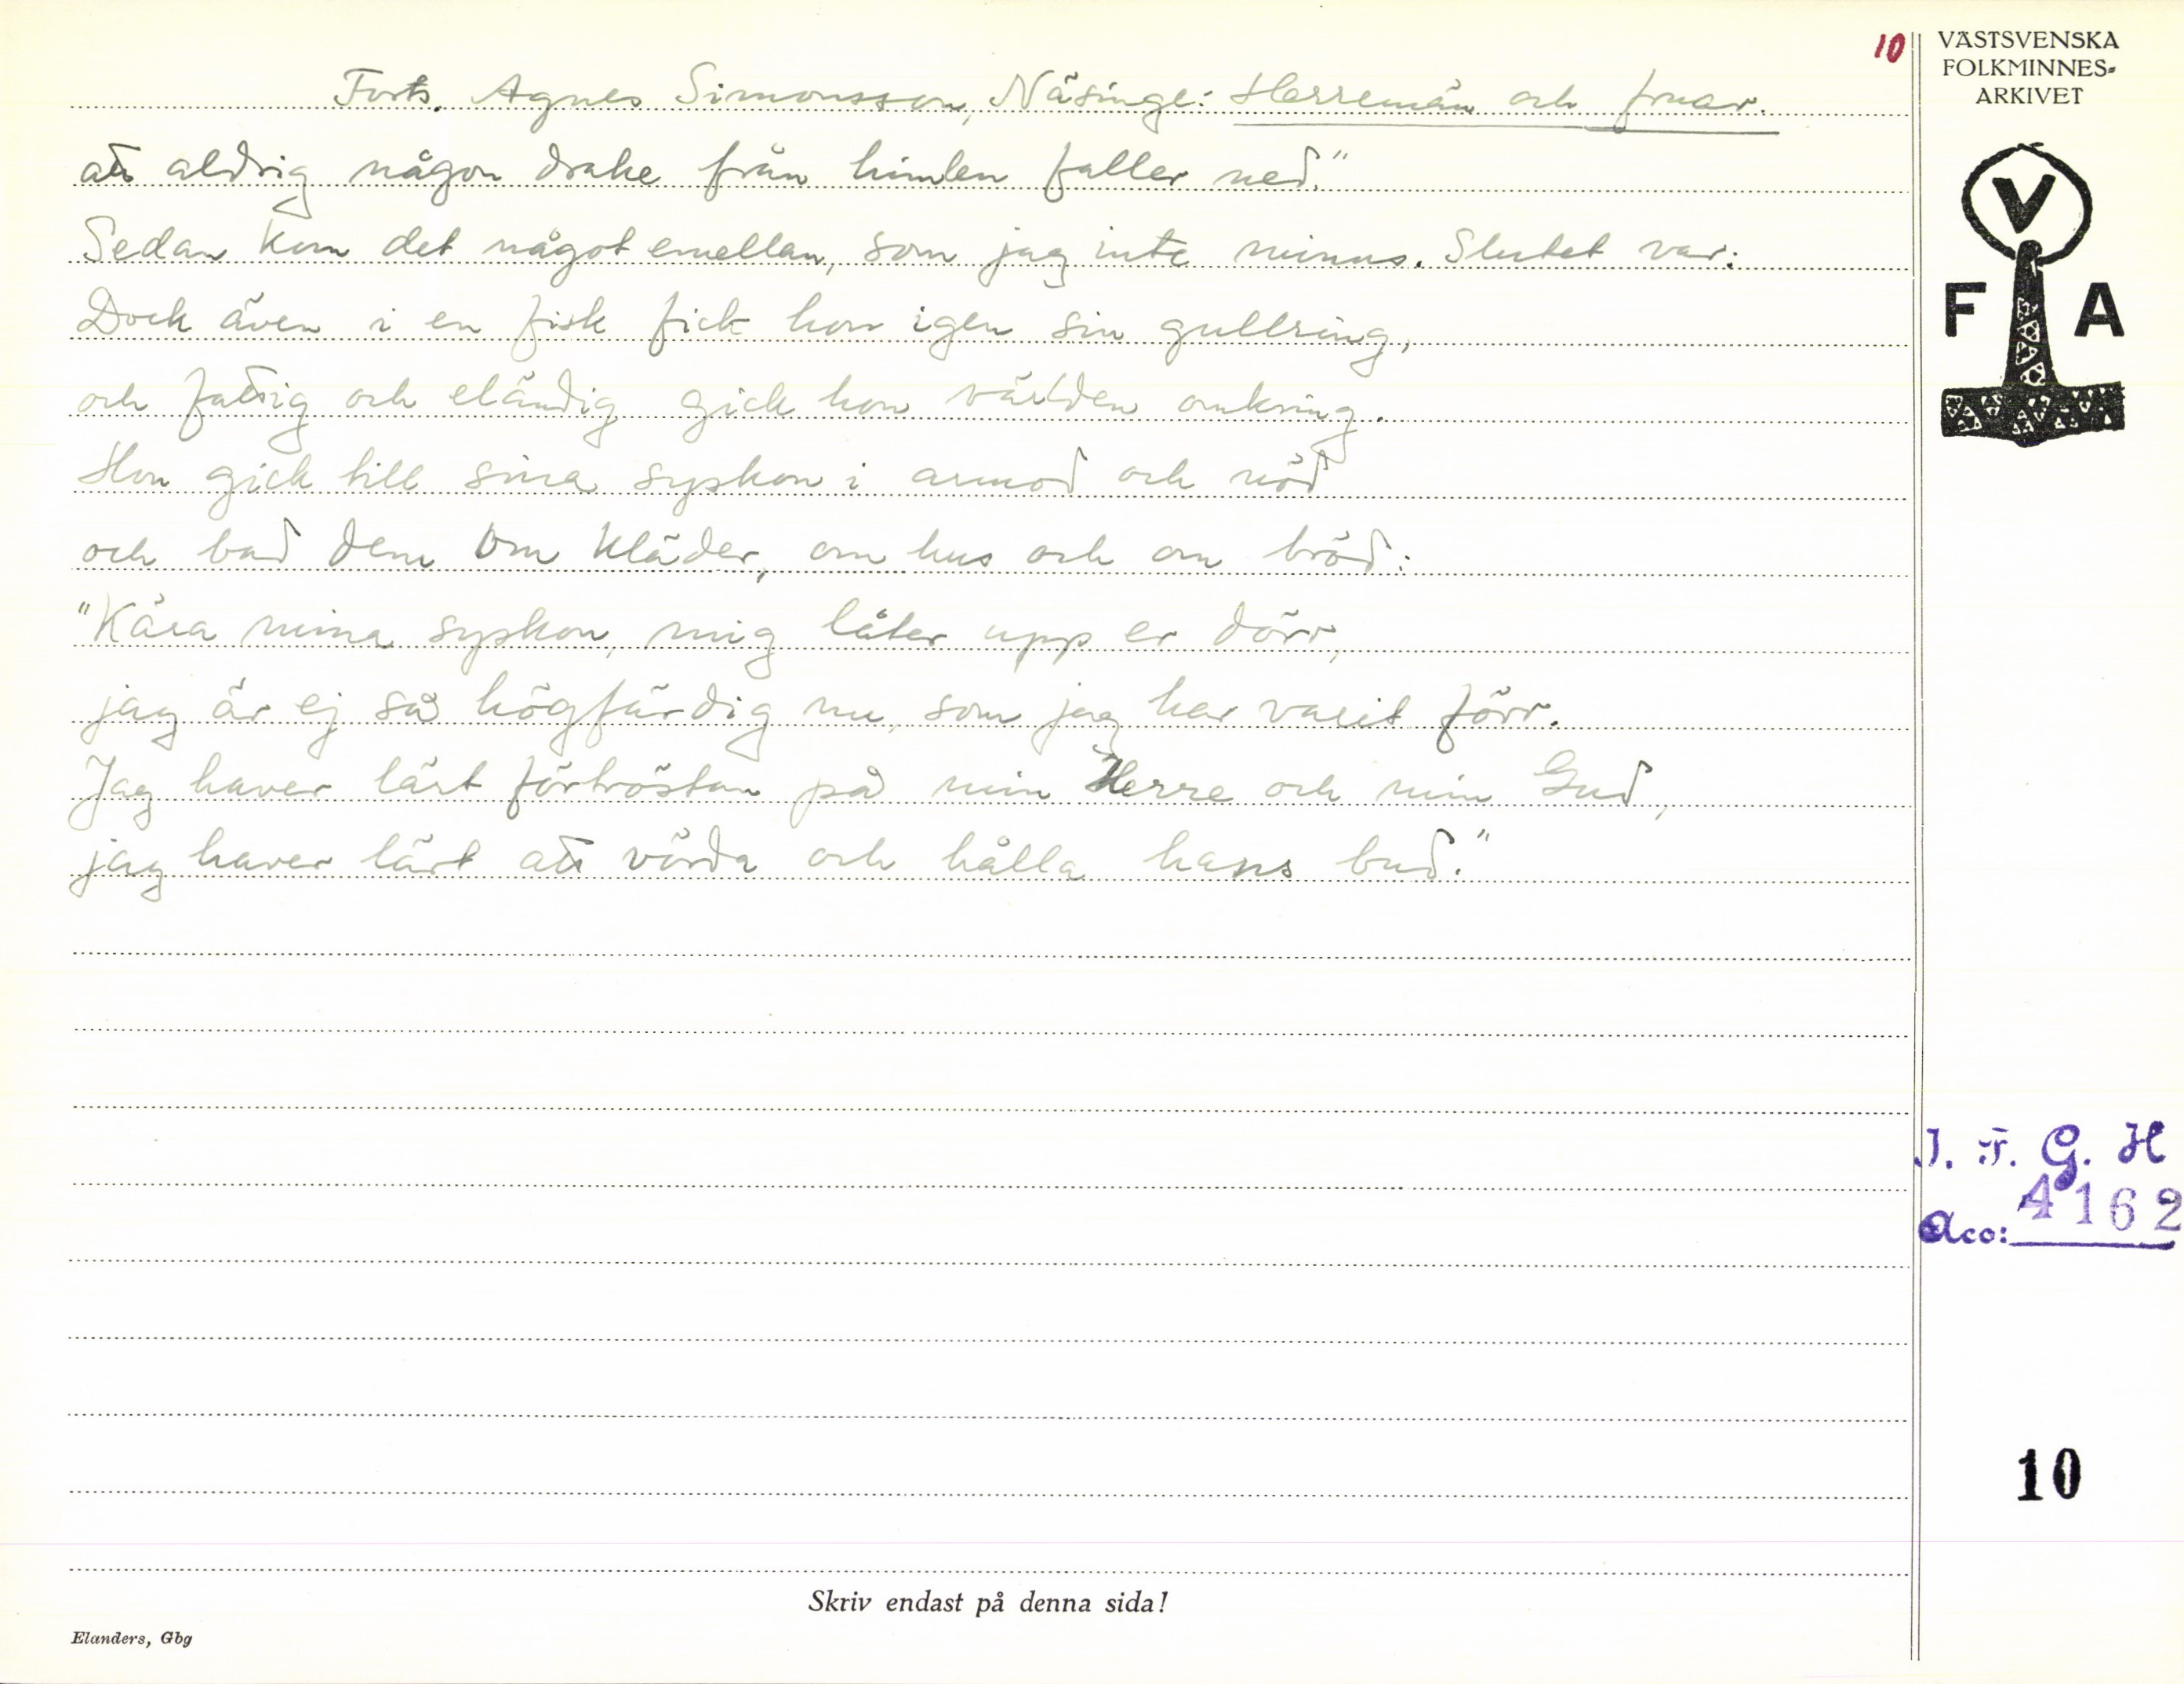 10
VÄSTSVENSKA
FOLKMINNES-
ARKIVET
Forts. Agnes Simonsson, Näsinge: Herremän och fruar.
att aldrig någon drake från himlen faller ned."
Sedan kom det något emellan, som jag inte minns. Slutet var:
Dock även i en fisk fick hon igen sin gullring,
och fattig och eländig gick hon världen omkring.
Hon gick till sina syskon i armod och nöd
och bad dem om kläder, om hus och om bröd:
"Kära mina syskon, mig låter upp er dörr,
jag är ej så högfärdig nu, som jag har varit förr.
Jag haver lärt förtröstan på min Herre och min Gud,
jag haver lärt att vörda och hålla hans bud."
V
F A
I. F. G. H
Acc: 4162
10
Skriv endast på denna sida!
Elanders, Gbg